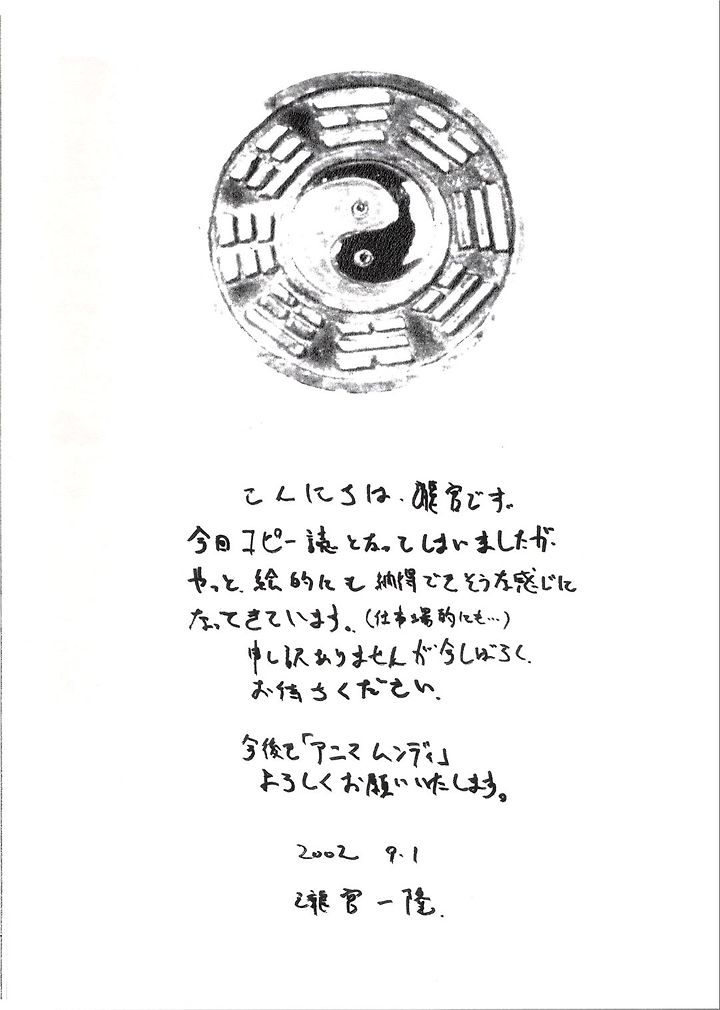 こんにちは、瀧宮です。
今回コピー誌となってしまいましたが、
やっと、絵的にも納得できそうな感じに
なってきています。(仕事場的にも…)
申し訳ありませんが今しばらく、
お待ちください。
今後も「アニマ ムンディ」
よろしくお願いいたします。
2002 9.1
瀧宮 一隆.